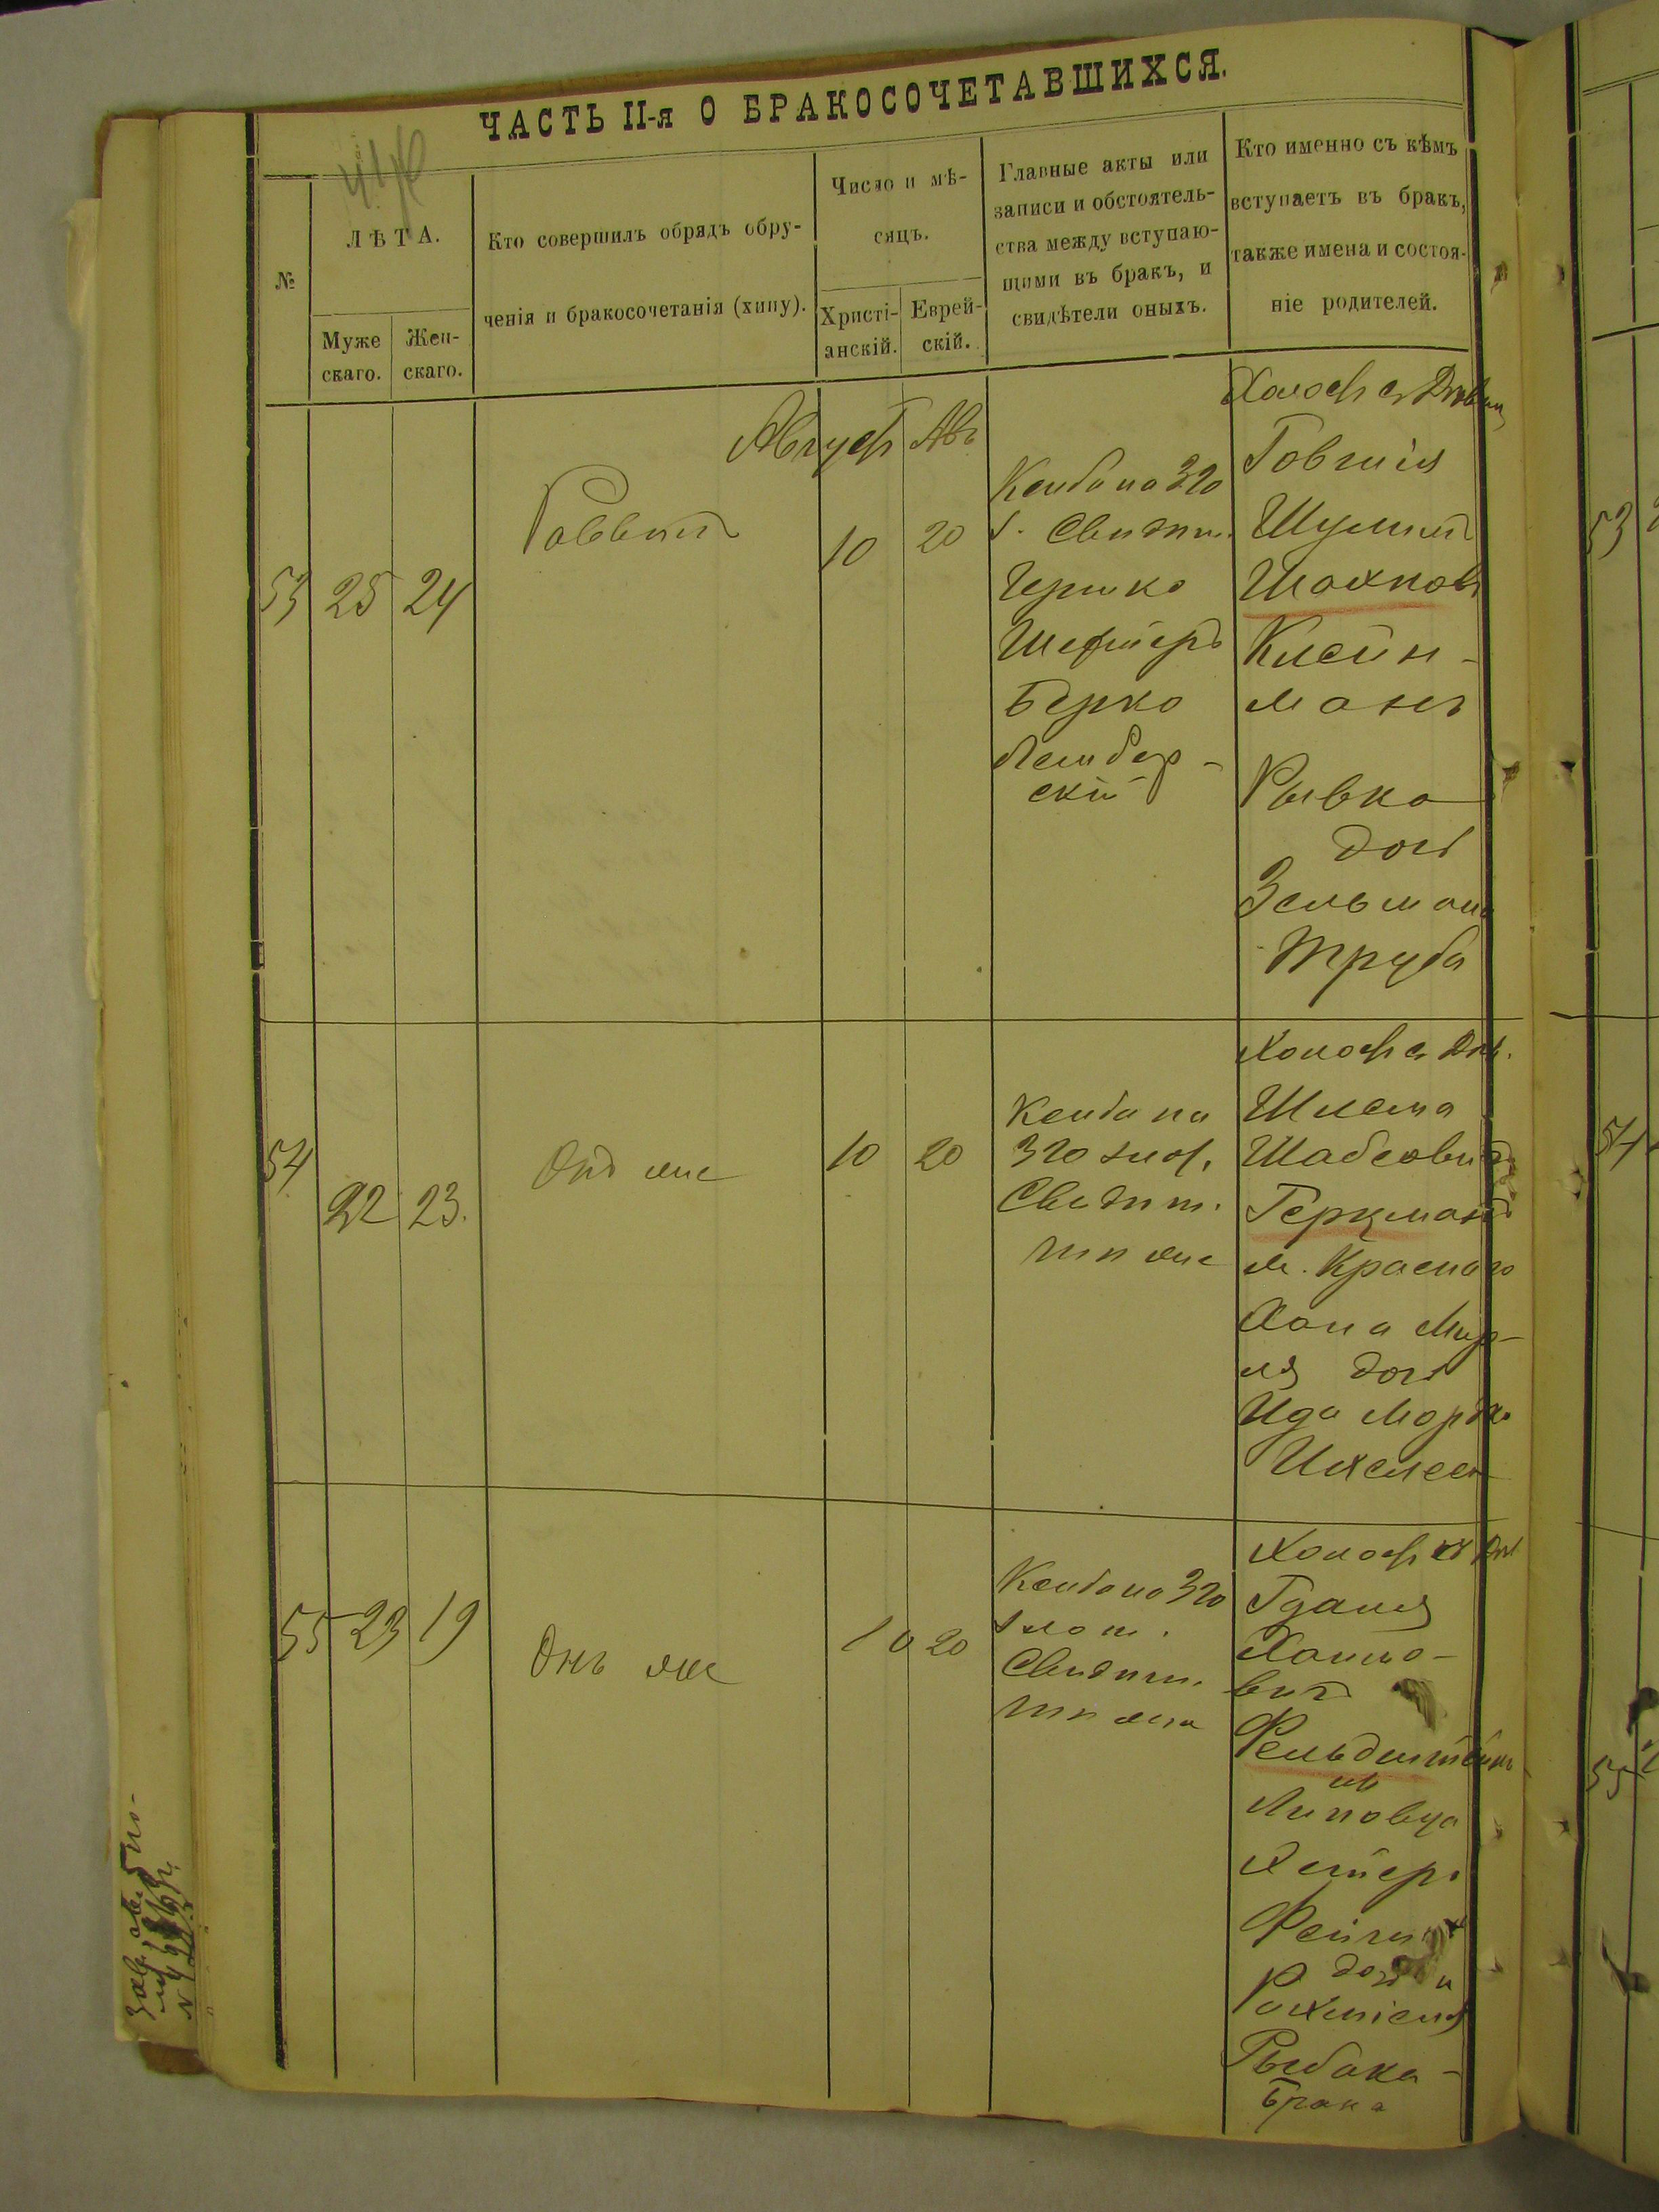 ЧАСТЬ II-я О БРАКОСОЧЕТАВШИХСЯ.
№
ЛѢТА.
Муже
скаго.
Жен-
скаго.
Кто совершилъ обрядъ обру-
ченія и бракосочетанія (хипу).
Число и мѣ-
сяцъ.
Христі-
анскій.
Еврей-
скій.
Главные акты или
записи и обстоятель-
ства между вступаю-
щими въ бракъ, и
свидѣтели оныхъ.
Кто именно съ кѣмъ
вступаетъ въ бракъ,
также имена и состоя-
ніе родителей.
Августъ Авъ
53 25 24
Раввинъ
10 20
Кетба на 320
Свидѣт.
Гершко
Шехтеръ
Берко
Лемберг-
скій
Холост съ Дѣвиц
Товшія
Шулимъ
Шахновъ
Клейн-
манъ
Рывка
доч
Зельмана
Труба
54
22 23.
Онъ же
10 20
Кетба на
320 злот.
Свидѣт.
тѣ же
Холост съ Дѣв.
Шлема
Шабсович
Герцманъ
м. Краснаго
Хана Мир-
ля доч
Ида Мордко
55 23 19
Онъ же
10 20
Кетба на 320
злот.
Свидѣт.
тѣ же
Холост съ Дѣв
Гдаля
Хаимо-
вичъ
Фельдштейнъ
из
Липовца
Эстеръ
Фейга
доч
Рахмiеля
Рыбака
Брана
53
54
55